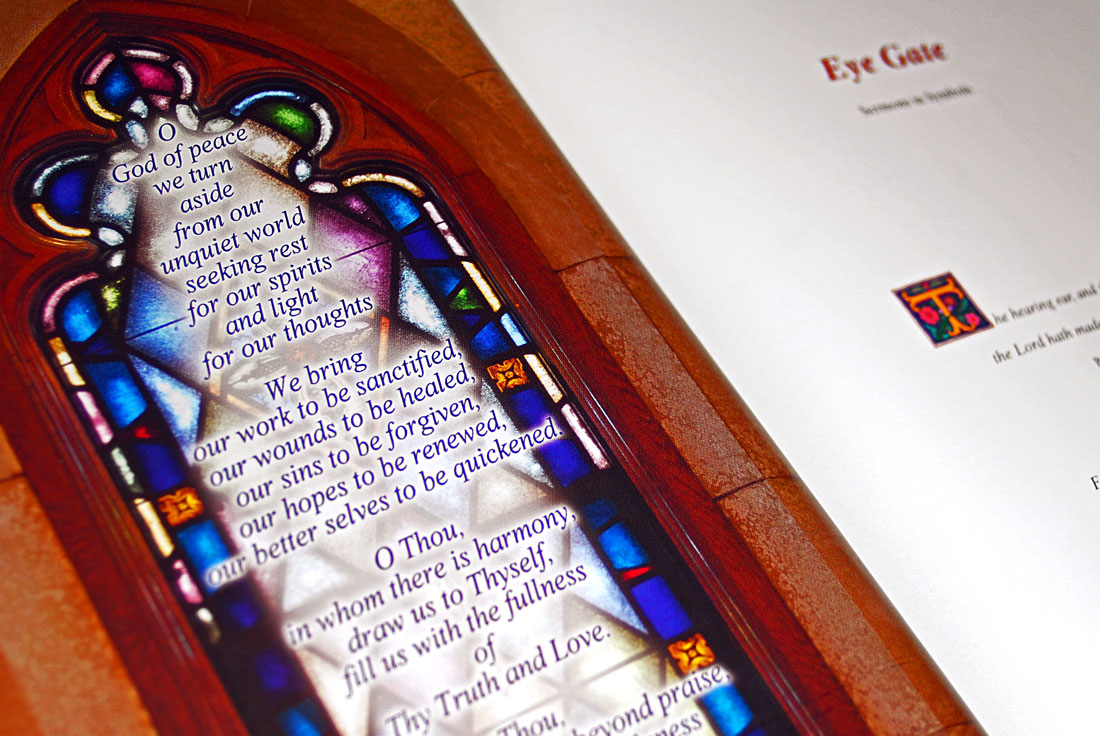 O
God of peace
we turn
aside
from our
unquiet world
seeking rest
for our spirits
and light
for our thoughts
We bring
our work to be sanctified,
our wounds to be healed,
our sins to be forgiven,
our hopes to be renewed,
our better selves to be quickened.
O Thou,
in whom there is harmony,
draw us to Thyself,
fill us with the fullness
of
Thy Truth and Love.
Thou,
beyond praise,
Eye Gate
Sermons in Symbols
The hearing ear, and
the Lord hath made